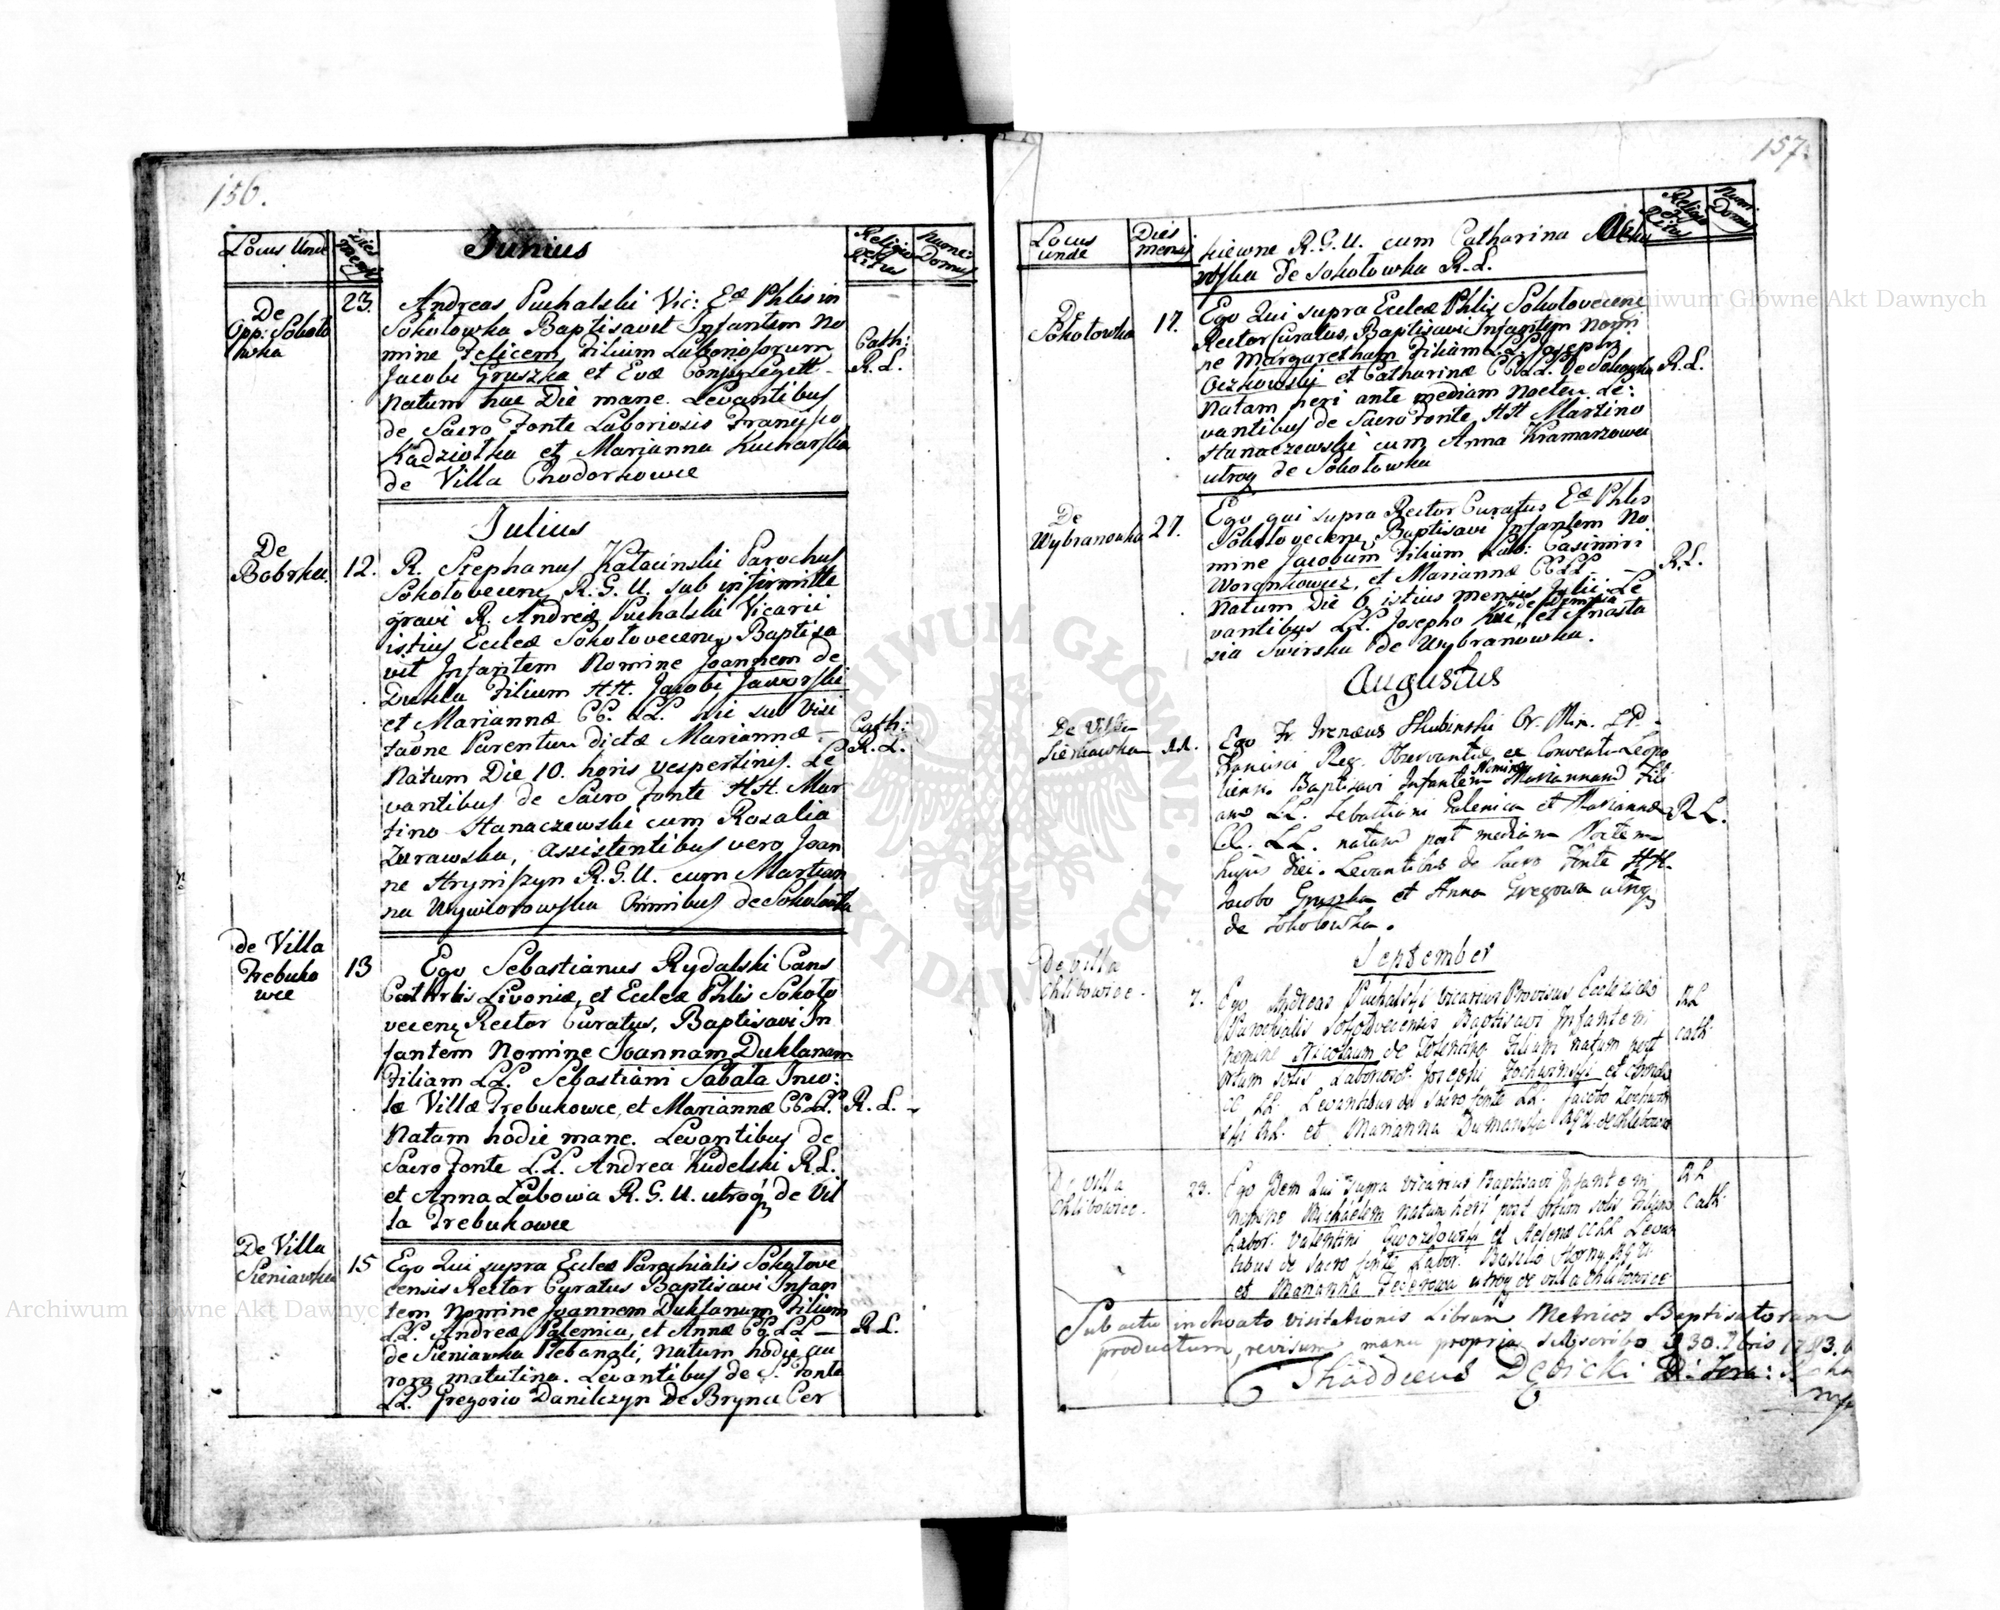 156.
Locus Unde
Dies Mensis
Junius
Religio et Ritus
Numer: Domus
De Opp: Sokoto
wka
23.
Andreas Puchalski Vic: Eæ Phlis in
Sokotowka Baptisavit Infantem No
mine Felicem Filium Laboriosorum
Jacobi Gruszka et Evæ Conjug Legitt
Natum hac Die mane. Levantibus
de Sacro Fonte Laboriosis Francisco
Kądziotka et Marianna Kucharska
de Villa Chodorkowce
Cath:
R. L.
Julius
De
Bobrka
12.
R. Stephanus Parochus
Sokotovecens R.G.U. sub infirmitte
gravi R. Andreæ Puchalski Vicarii
istius Eccleæ Sokotovecens Baptisa
vit Infantem Nomine Joannem de
Dukla Filium HH. Jacobi Jaworski
et Mariannæ CC. LL. hic sub Visi
taone Parentum dictæ Mariannæ
Natum Die 10. horis vespertinis. Le
vantibus de Sacro Fonte HH. Mar
tino Hanaczewski cum Rosalia
Zurawska, assistentibus vero Joan
ne Hryniszyn R.G.U. cum Marian
na Wywiorowska Omnibus de Sokotowka
Cath:
R. L.
de Villa
Trebuko
wce
13
Ego Sebastianus Rydalski Cans
Cathrlis Livoniæ, et Eccleæ Phlis Sokoto
vecens Rector Curatus, Baptisavi In
fantem Nomine Joannam Duklanam
Filiam LL. Sebastiani Sabata Inco:
læ Villæ Trebukowce, et Mariannæ CC.LL.
Natam hodie mane. Levantibus de
Sacro Fonte L.L. Andrea Kudelski R.L.
et Anna Labowa R.G.U. utroq de Vil
la Trebukowce
R. L.
De Villa
Sieniawka
15
Ego Qui supra Eccleæ Parochialis Sokotove
censis Rector Curatus Baptisavi Infan
tem Nomine Joannem Duklanum Filium
LL. Andreæ Palenica, et Annæ CC. LL
de Sieniawka Plebanali, natum hodie au
rora matutina. Levantibus de S. Fonte
LL. Gregorio Danilczyn De Bryna Cer
R.L.
157.
Locus unde
Dies mensis
Religio et Ritus
Numeri Domus
kiewne R.G.U. cum Catharina
wska de Sokotowka R.L.
De
Sokotowka
17.
Ego Qui supra Eccleæ Phlis Sokotovecens
Rector Curatus, Baptisavi Infantem Nomi
ne Margaretham Filiam LL. Josephi
Oczkowski et Catharinæ CC.LL. De Sokotowka
Natam heri ante mediam noctem. Le:
vantibus de Sacro Fonte HH Martino
Hanaczewski cum Anna Kramarzowa
utroq de Sokotowka
R.L.
De
Wybranowka
27.
Ego qui supra Rector Curatus Eæ Phlis
Sokotovecens Baptisavi Infantem No
mine Jacobum Filium Lab: Casimiri
et Mariannæ CC LL
Natum Die 6 istius mensis Julii Le
vantibus LL. Josepho de Dempia et Anasta
sia Swirska de Wybranowka.
R.L.
Augustus
De Villa
Sieniawka
Ego Fr. Irenæus Skubinski Or. Min. S.P.
Francisci Reg. Observantiæ ex Conventu Leopo
liens. Baptisavi Infantem Nomine Mariannam Fili
am LL. Sebastiani Palenica et Mariannæ
CC. LL. natam post mediam Noctem
hujus diei. Levantibus de Sacro Fonte HH.
Jacobo Gruszka et Anna Gregowa utroq
de Sokotowka.
R L.
September
De Villa
Chlibowice.
7.
Ego Andreas Puchalski Vicarius Provisus Ecclesiæ
Parochialis Sokotovecensis Baptisavi Infantem
nomine Nicolaum de Tolentino Filium natum post
ortum solis Laborios: Josephi et
CC LL. Levantibus de Sacro fonte LL. Jacobo
ski RL. et Marianna Dumanska RGU. de Chlibowice
RL
Cath:
De Villa
Chlibowice.
23.
Ego Idem Qui Supra Vicarius Baptisavi Infantem
nomine Michaelem natum heri post ortum solis Filium
Labor: Valentini Gwozdowski et Helenæ CCLL Levan
tibus de Sacro fonte Labor: Basilio Horny RGU.
et Marianna Federowa utroq de villa Chlibowice
RL
Cath:
Sub actu inchoato visitationis Librum Metrices Baptisatorum
productum, revisum manu propria subscribo D 30. 7bris 1783.
Thaddæus Dębicki